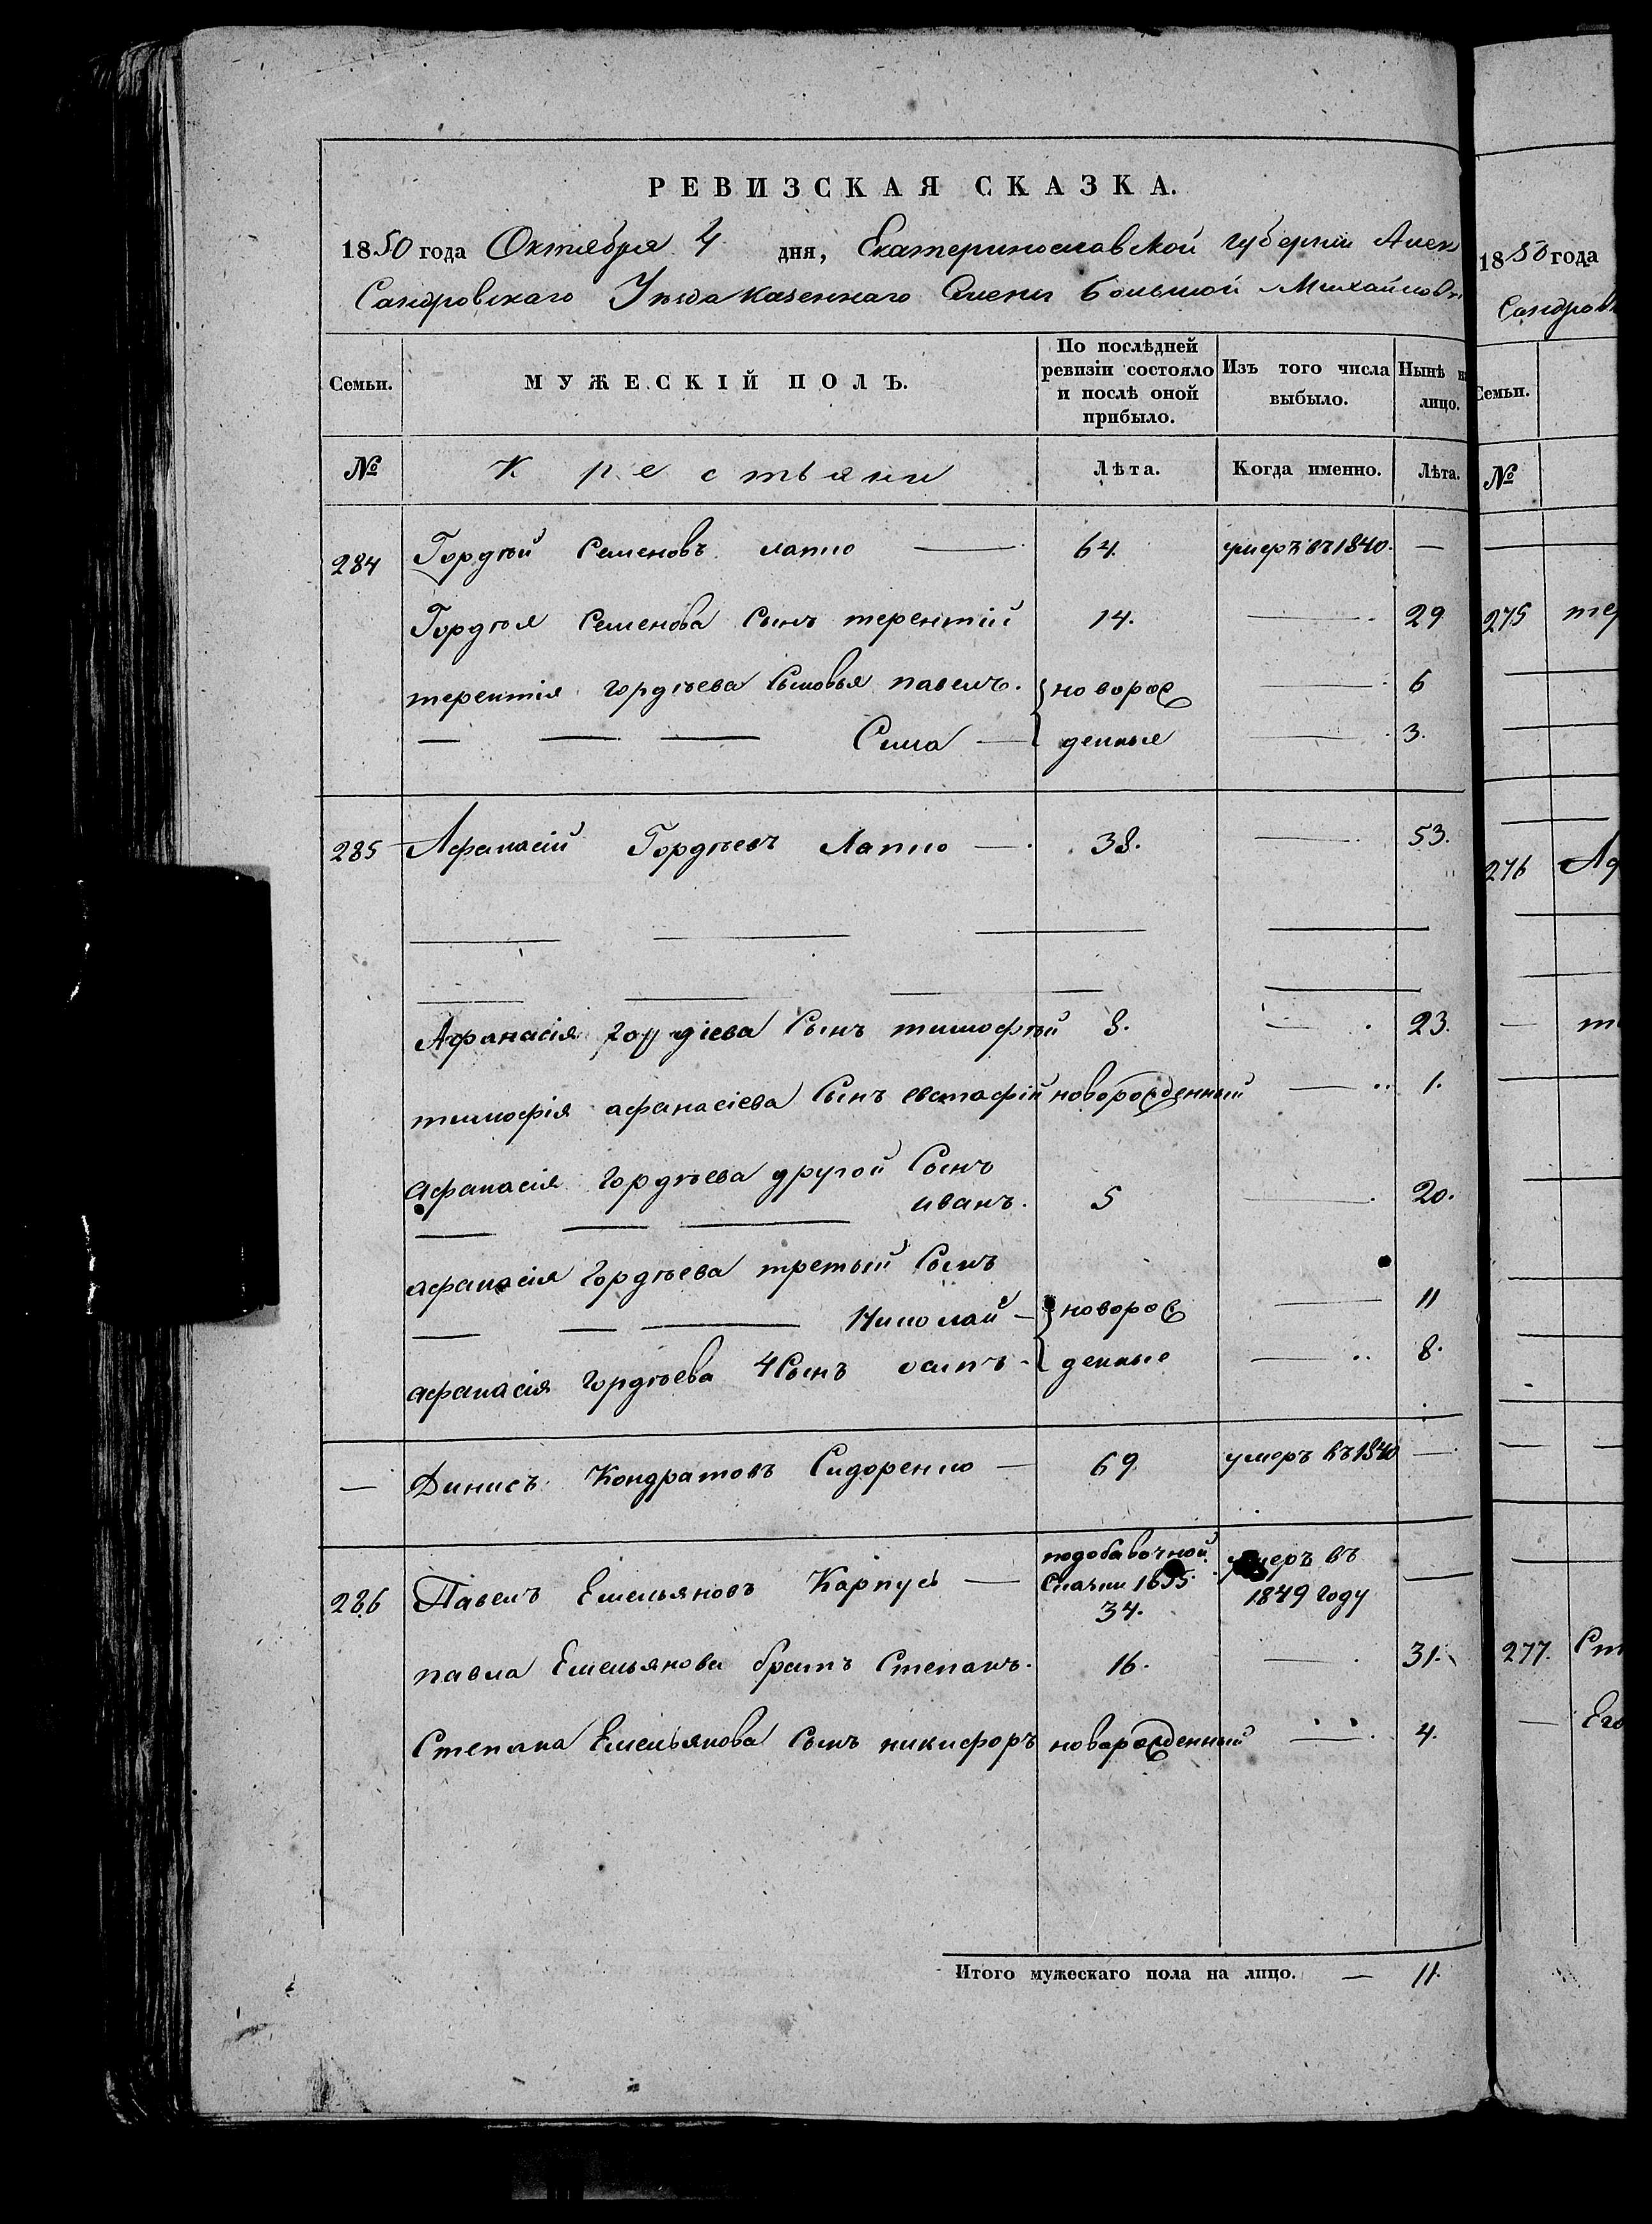 РЕВИЗСКАЯ СКАЗКА.
1850 года Октября 4 дня, Екатеринославской губернии Алек
Сандровскаго Уѣзда казеннаго Селенія Большой Михайловк
Семьи. МУЖЕСКІЙ ПОЛЪ. По послѣдней ревизіи состояло и послѣ оной прибыло. Изъ того числа выбыло. Нынѣ на лицо.
№ Крестьяни Лѣта. Когда именно. Лѣта.
284 Гордѣй Семеновъ лапко — 64. умеръ въ 1840. —
Гордѣя Семенова Сынъ терентій 14. — 29
терентія гордѣева Сыновья павелъ. новорож — 6
— — — Сила — денные — 3.
285 Афанасій Гордѣевъ Лапко — 38. — 53.
Афанасія гордіева Сынъ тимофѣй 8. — 23.
тимофія афанасіева Сынъ евстафій новорожденный — 1.
афанасія гордѣева другой Сынъ
— — — иванъ. 5 — 20.
афанасія гордѣева третьій Сынъ
— — — Николай — новорож — 11
афанасія гордѣева 4 Сынъ осипъ. денные — 8.
— Динисъ Кондратовъ Сидоренко — 69 умеръ въ 1840 —
286 Павелъ Емельяновъ Карпусь — подобавочной Сказки 1835 34. умеръ въ 1849 году —
павла Емельянова братъ Степанъ. 16. — 31.
Степана Емельянова Сынъ никифоръ новорожденный — 4.
Итого мужескаго пола на лицо. — 11.
1850 года
Сандровк
Семьи.
№
275 тер
276 Аф
277. Ст
— Его